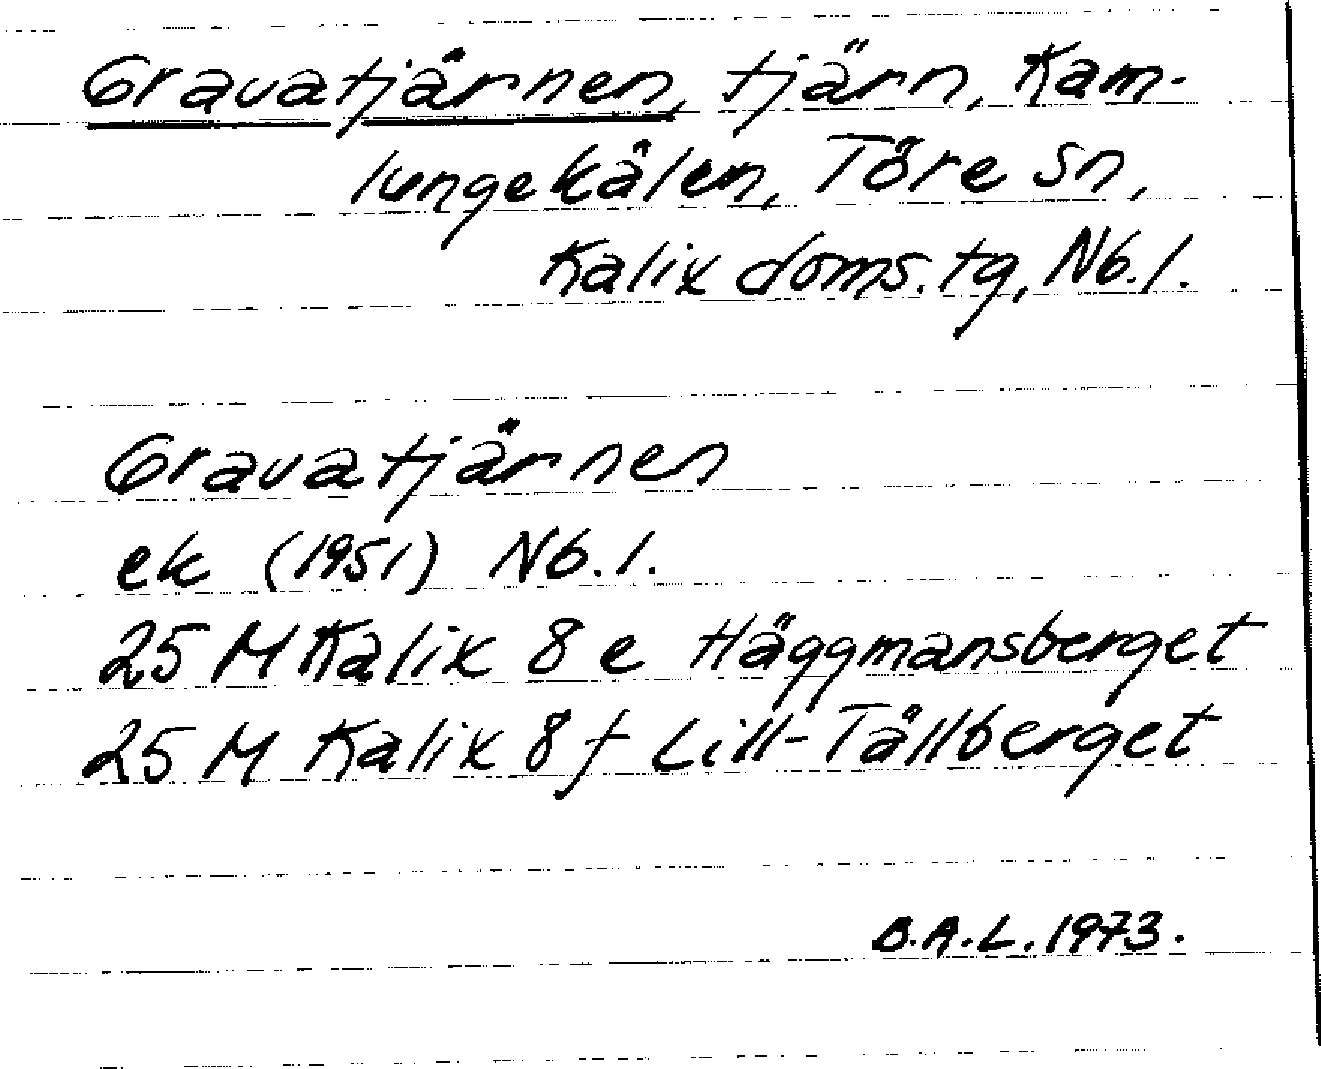 Gravatjärnen, tjärn, Kam-
lungekålen, Töre sn,
Kalix doms. tg, Nb. l.
Gravatjärnen
ek (1951) Nb. l.
25 M Kalix 8 e Häggmansberget
25 M Kalix 8 f Lill-Tållberget
B.A.L. 1973.